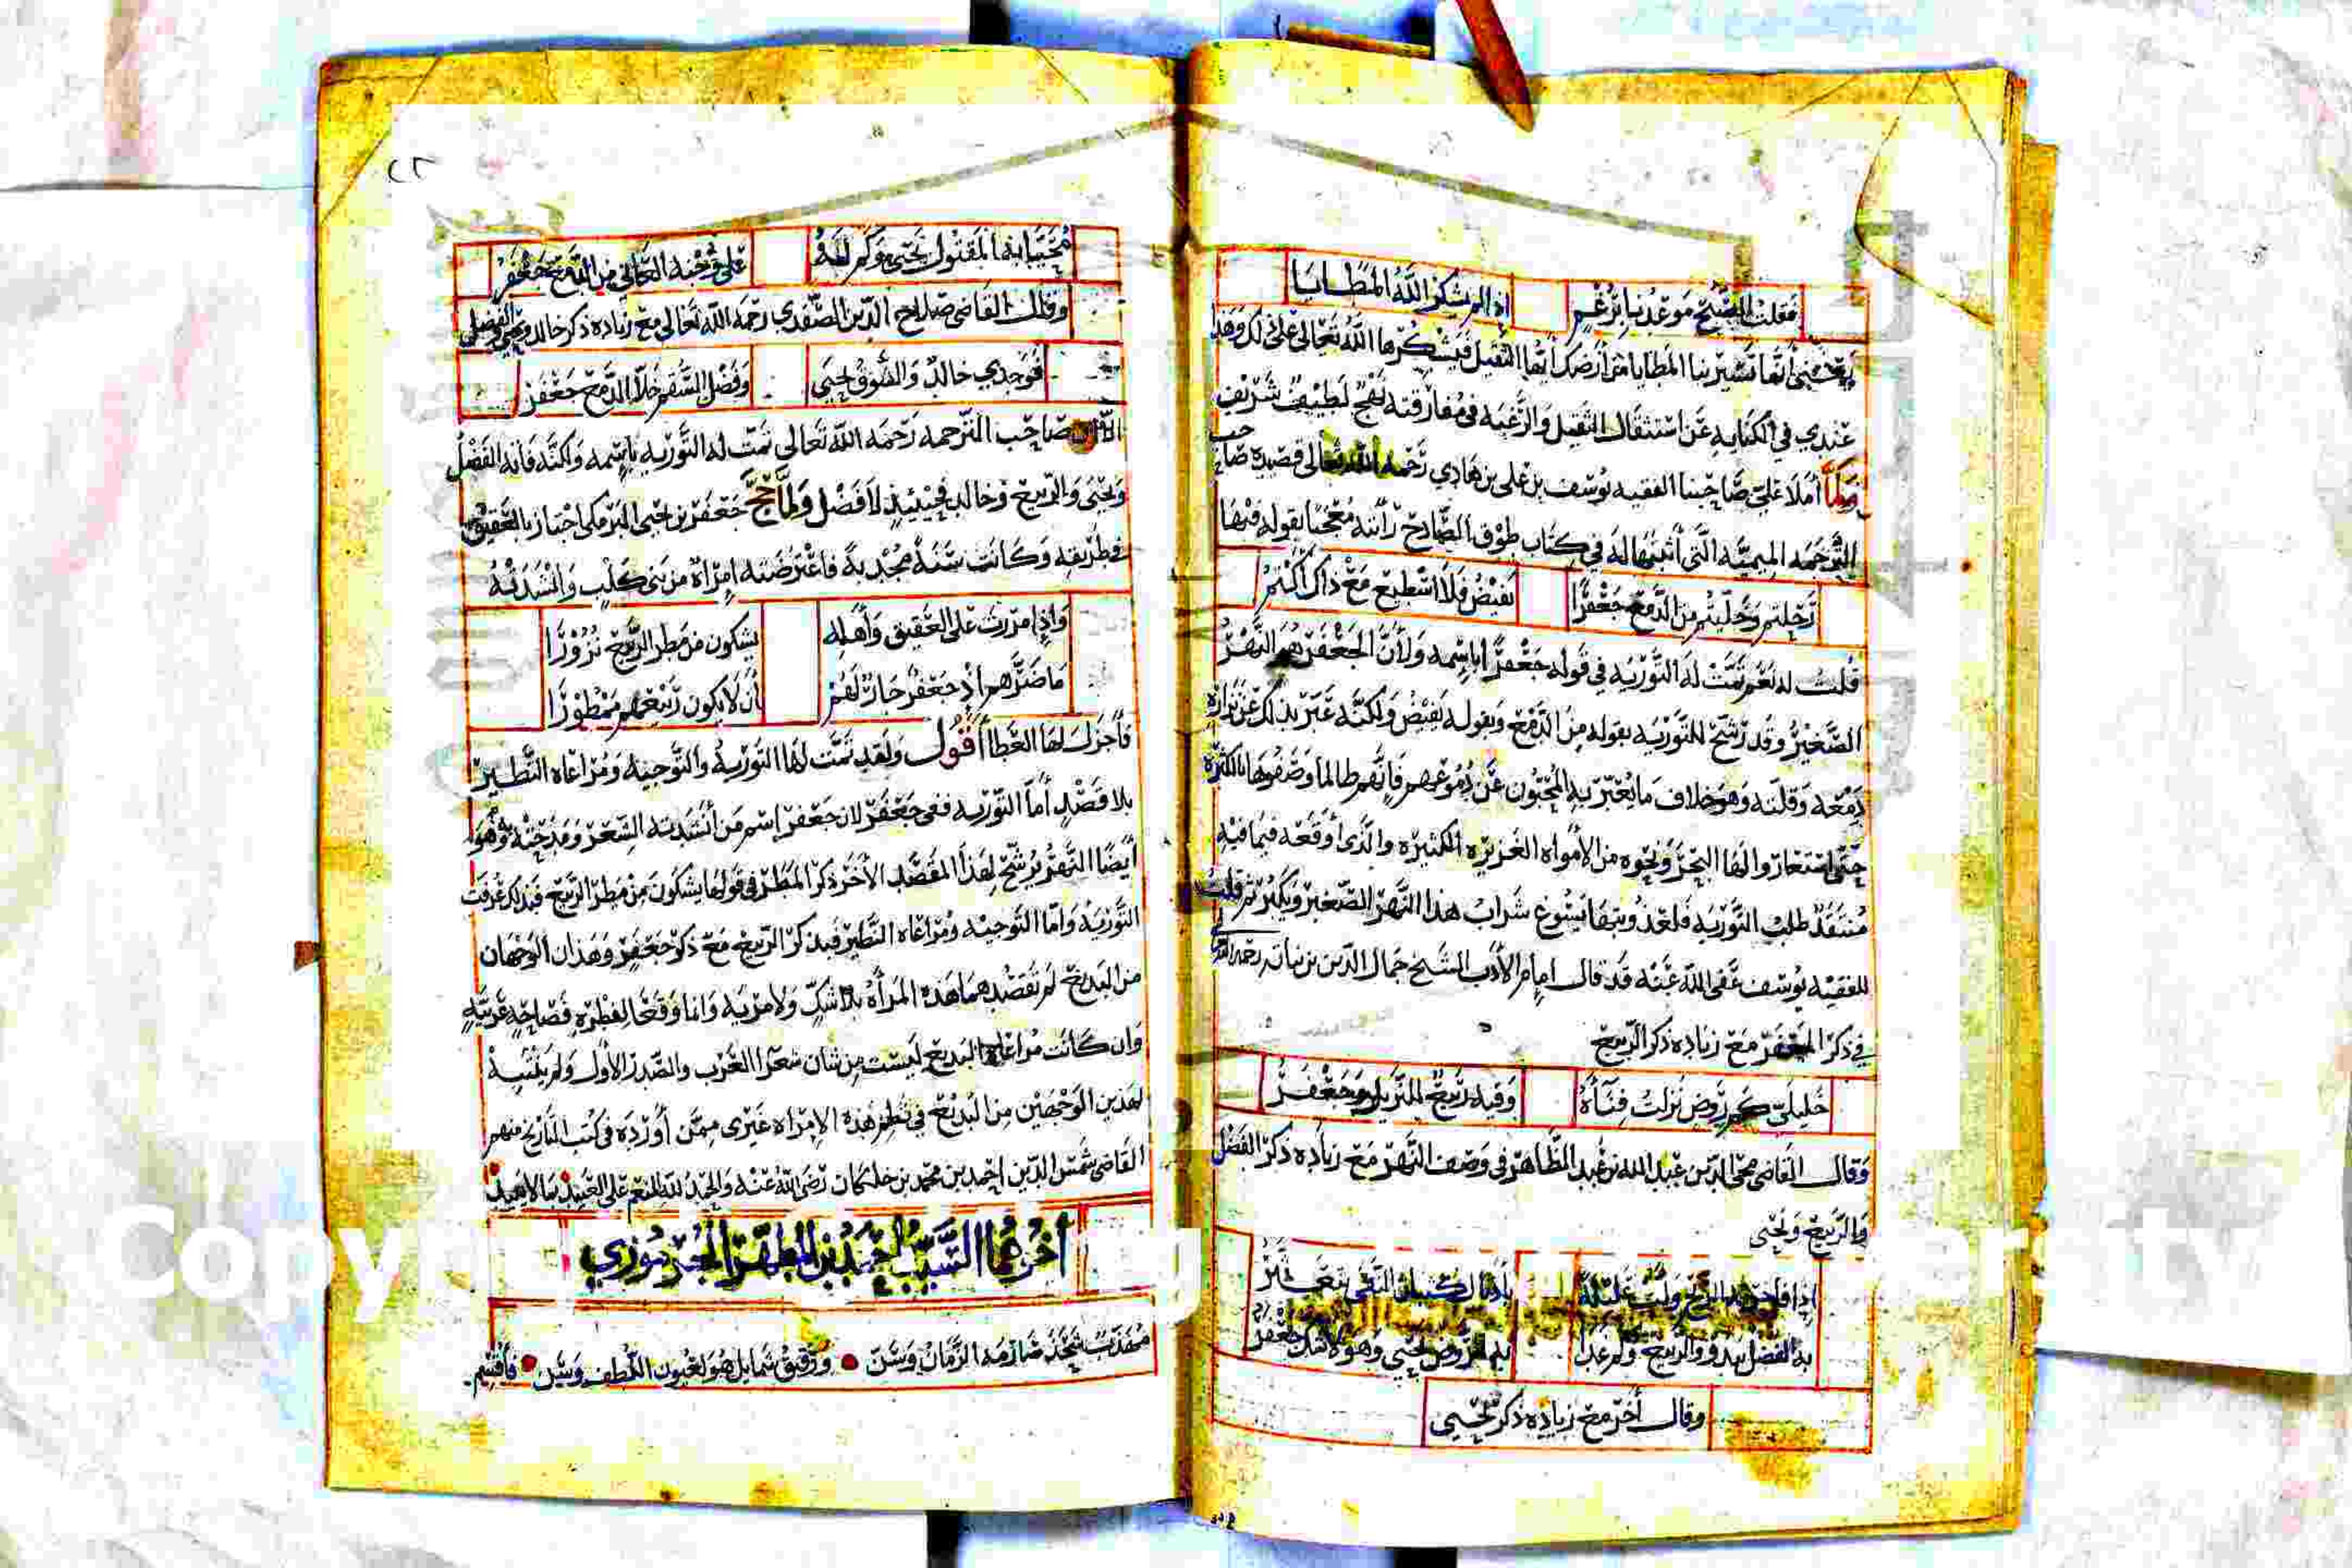 فقلت الصبح موعدنا برغم إذا لم يشكر الله المطايا
يعني أنها تسير بنا المطايا من أرضك أيها الثقيل فيشكرها الله تعالى على ذلك وهذا
عندي في الكناية عن استثقال الثقيل والرغبة في مفارقته نهج لطيف شريف
ولما أملا علي صاحبنا الفقيه يوسف بن علي بن هادي رحمه الله تعالى قصيدة صاحب
الترجمه الميميه التي أثبتها له في كتاب طوق الصادح رأيته معجبا بقوله فيها
رحلتم وخليتم من الدمع جعفرا يفيض فلا اسطيع مع ذاك أكتم
قلت له نعم تمت له التوريه في قوله جعفرا باسمه ولأن الجعفر هو النهر
الصغير وقد رشح للتوريه بقوله من الدمع وبقوله يفيض ولكنه عبر بذلك عن نزارة
دمعه وقلته وهو خلاف ما يعبر به المحبون عن دموعهم فإنهم طالما وصفوها بالكثرة
حتى استعاروا لها البحر ونحوه من الأمواه الغزيره الكثيره والذي أوقعه فيما فيه
منتقد طلب التوريه فلعذوبتها يسوغ شراب هذا النهر الصغير ويكثر ثم قلت
للفقيه يوسف عفى الله عنه قد قال امام الأدب الشيخ جمال الدين بن نباته رحمه الله
في ذكر الجعفر مع زياده ذكر الربيع
خليلي كم روض نزلت فناءه وفيه ربيع للنزيل وجعفر
وقال القاضي محي الدين بن عبد الله بن عبد الظاهر في وصف النهر مع زياده ذكر الفضل
والربيع ويحيى
إذا فاخرته الريح ولت عليلة بأذيال كثبان النقى تتعثر
به الفضل يبدو والربيع وكم غدا به الروض يحيى وهو لا شك جعفر
وقال أخر مع زياده ذكر يحيى
٢٢
محيا ابنه المقتول يحيى وكم له على وجنة العالي من الدمع جعفر
وقال القاضي صلاح الدين الصفدي رحمه الله تعالى مع زياده ذكر خالد ويحيى والفضل
فوجدي خالد والشوق يحيى وفضل السقم خلا الدمع جعفر
صاحب الترجمه رحمه الله تعالى تمت له التوريه باسمه ولكنه فاته الفضل
ويحيى والربيع وخالد فحينيذ لا فضل ولما حج جعفر بن يحيى البرمكي اجتاز بالعقيق
في طريقه وكانت سنة مجدبة فاعترضته امرأة من بني كلب وانشدته
وإذا مررت على العقيق وأهله يشكون من مطر الربيع نزورا
ما ضرهم إذ جعفر جار لهم أن لا يكون ربيعهم ممطورا
فأجزل لها العطا أقول ولقد تمت لها التورية والتوجيه ومراعاه النظير
بلا قصد أما التوريه ففي جعفر لان جعفر إسم من أنشدته الشعر ومدحته وهو
أيضا النهر يرشح لهذا المقصد الأخر ذكر المطر في قولها يشكون من مطر الربيع فبذلك عرفت
التوريه واما التوجيه ومراعاه النظير فبذكر الربيع مع ذكر جعفر وهذان الوجهان
من البديع لم تقصدهما هذه المرأة بلا شك ولا مريه وانما وقعا لفطرة فصاحة عربية
وان كانت مراعاة البديع ليست من شان شعرا العرب والصدر الأول ولم يتنبه
لهذين الوجهين من البديع في نظم هذه الامراه غيرى ممن أورده في كتب التاريخ منهم
القاضي شمس الدين احمد بن محمد بن خلكان رضي الله عنه والحمد لله المنعم على العبيد بما لا يبيد
أخرهما السيد أحمد بن المطهر الجرموزي
مهذب شحذ صارمه الزمان وسن ورقيق شمايل هو لعيون اللطف وسن فأقسم